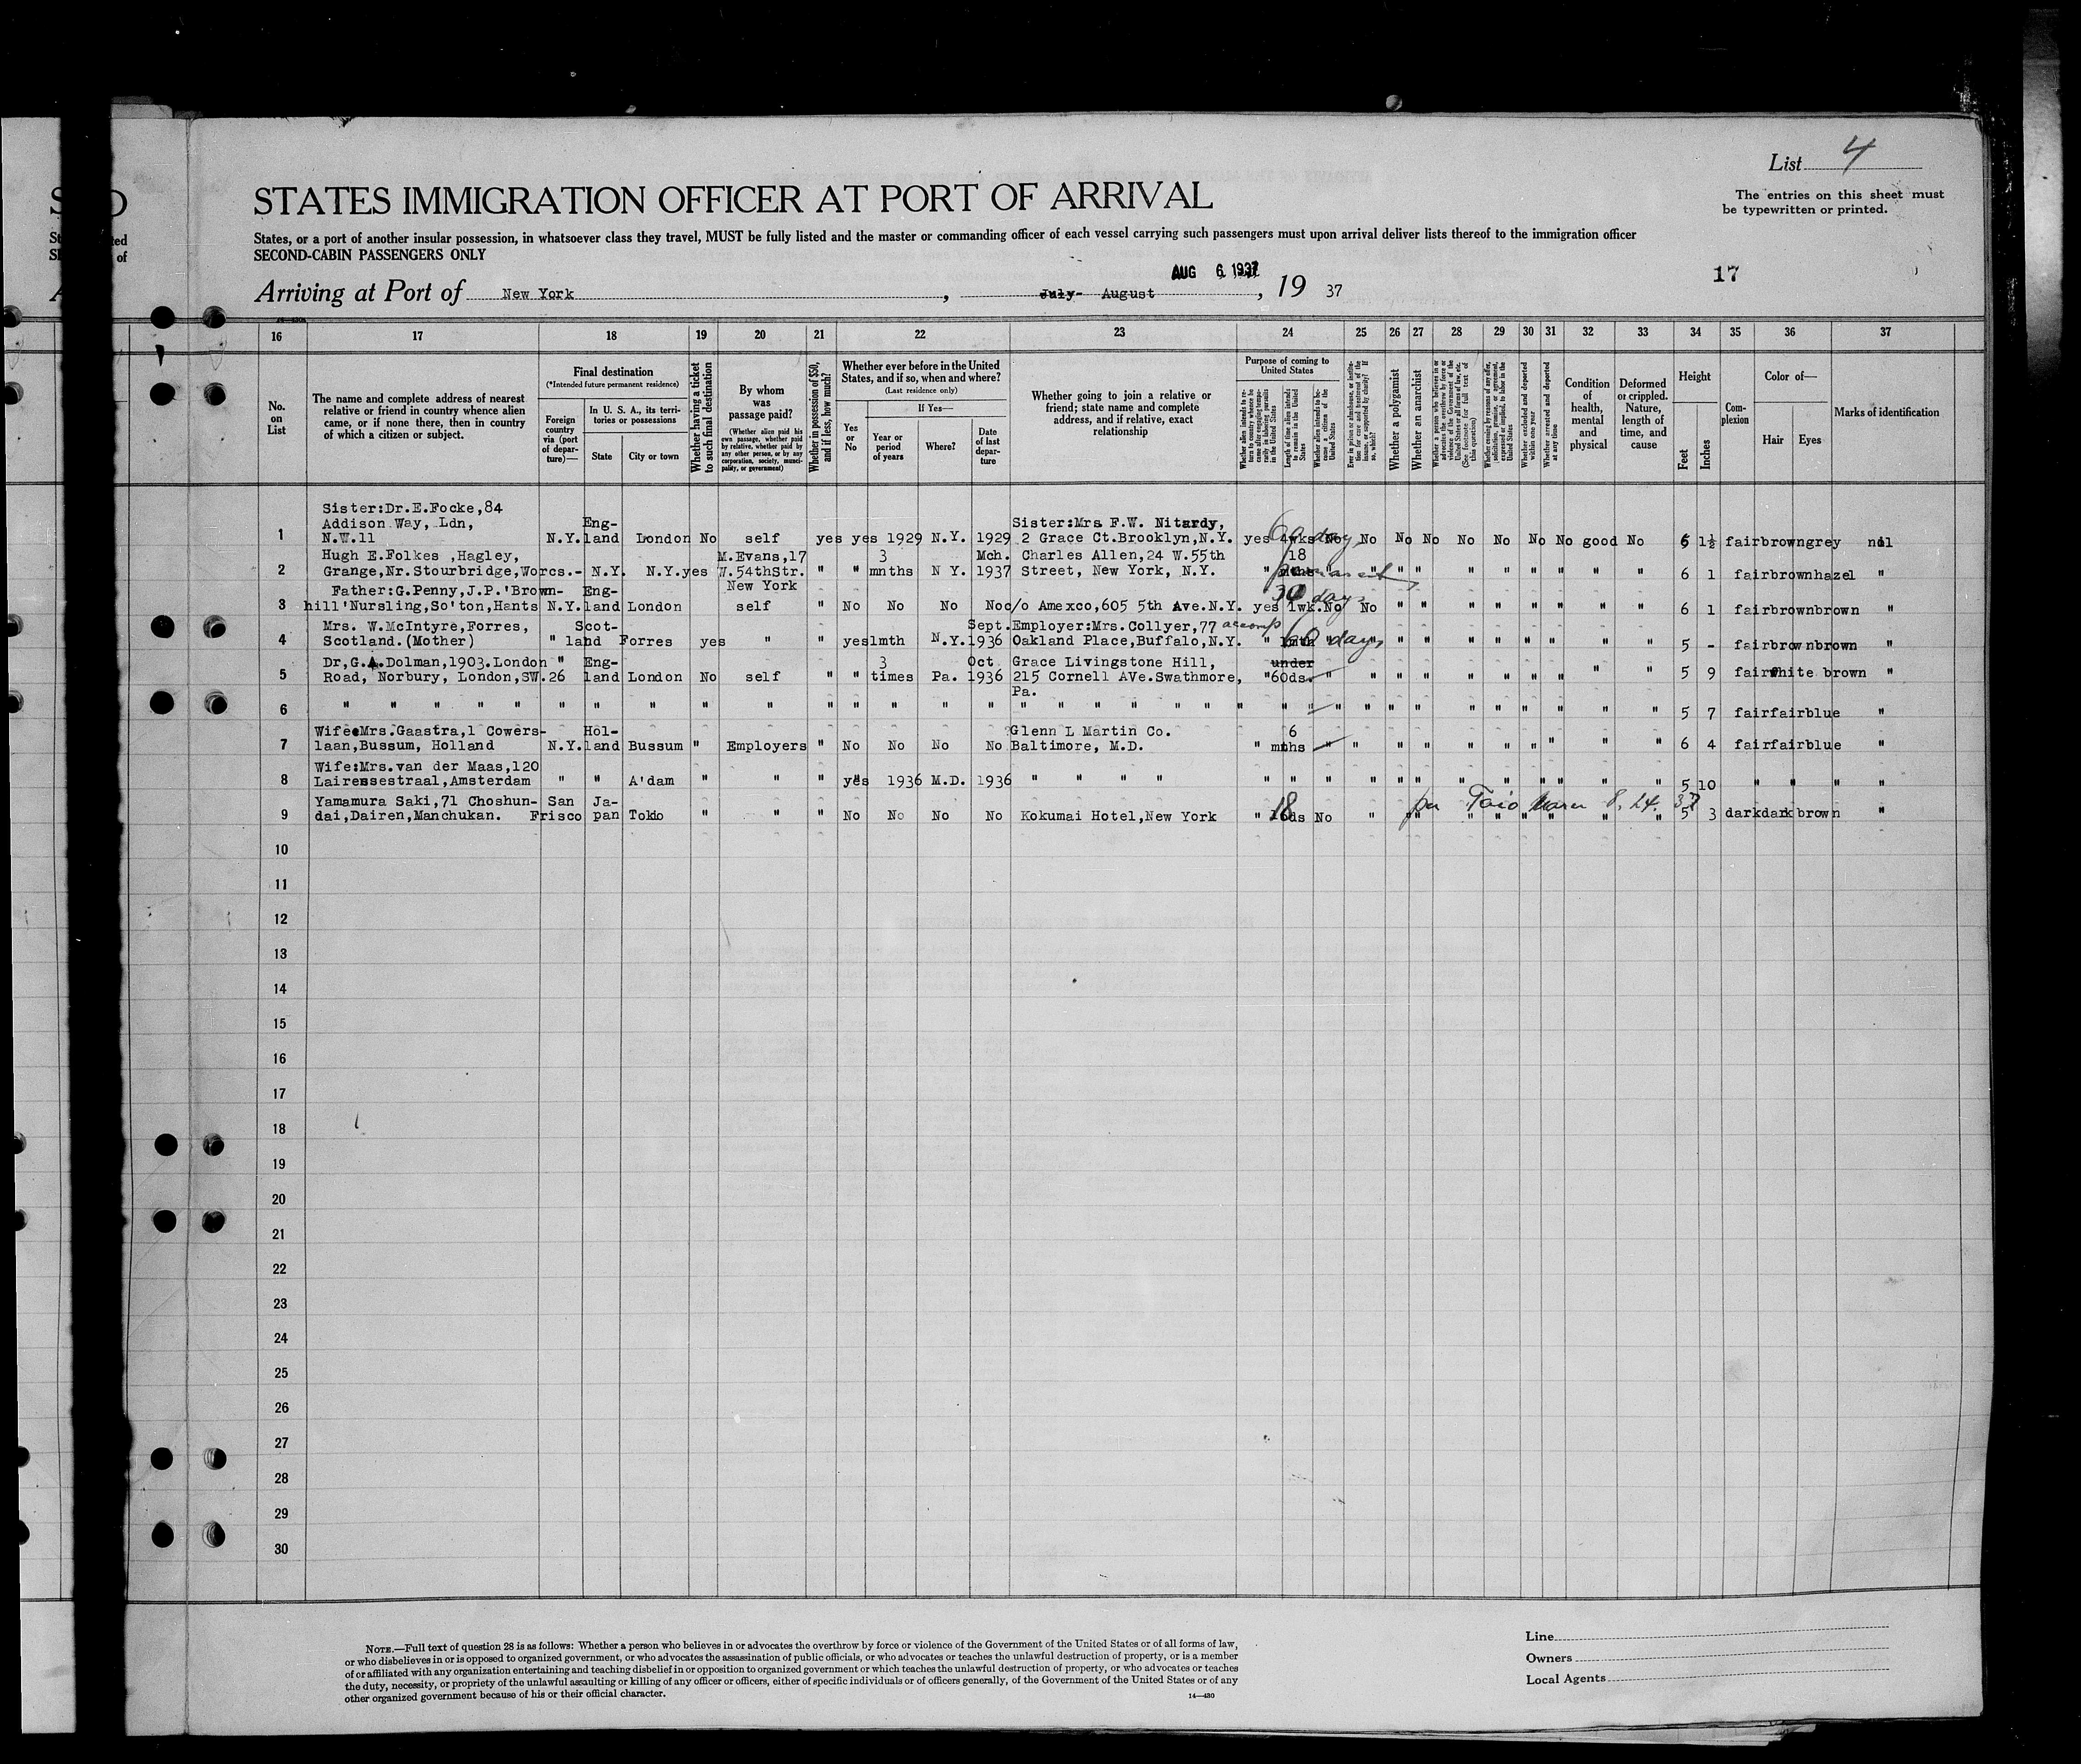 List 4
STATES IMMIGRATION OFFICER AT PORT OF ARRIVAL
The entries on this sheet must
be typewritten or printed.
States, or a port of another insular possession, in whatsoever class they travel, MUST be fully listed and the master or commanding officer of each vessel carrying such passengers must upon arrival deliver lists thereof to the immigration officer
SECOND-CABIN PASSENGERS ONLY
AUG 6 1937
17
Arriving at Port of New York, July- August, 19 37
16 17 18 19 20 21 22 23 24 25 26 27 28 29 30 31 32 33 34 35 36 37
No. on List
The name and complete address of nearest
relative or friend in country whence alien
came, or if none there, then in country
of which a citizen or subject.
Final destination
(*Intended future permanent residence)
Foreign country via (port of departure)—
In U. S. A., its territories or possessions
State
City or town
Whether having a ticket to such final destination
By whom was passage paid?
(Whether alien paid his own passage, whether paid by relative, whether paid by any other person, or by any corporation, society, municipality, or government)
Whether in possession of $50, and if less, how much?
Whether ever before in the United States, and if so, when and where?
(Last residence only)
Yes or No
If Yes—
Year or period of years
Where?
Date of last departure
Whether going to join a relative or
friend; state name and complete
address, and if relative, exact
relationship
Purpose of coming to United States
Whether alien intends to return to country whence he came after engaging temporarily in laboring pursuits in the United States
Length of time alien intends to remain in the United States
Whether alien intends to become a citizen of the United States
Ever in prison or almshouse, or institution for care and treatment of the insane, or supported by charity? If so, which?
Whether a polygamist
Whether an anarchist
Whether a person who believes in or advocates the overthrow by force or violence of the Government of the United States or all forms of law, etc. (See footnote for full text of this question)
Whether coming by reasons of any offer, solicitation, promise, or agreement, expressed or implied, to labor in the United States
Whether excluded and deported within one year
Whether arrested and deported at any time
Condition of health, mental and physical
Deformed or crippled. Nature, length of time, and cause
Height
Feet
Inches
Complexion
Color of—
Hair
Eyes
Marks of identification
Sister:Dr.E.Focke,84
Addison Way, Ldn, Eng- Sister:Mrs F.W. Nitardy, 60 days
1 N.W.11 N.Y. land London No self yes yes 1929 N.Y. 1929 2 Grace Ct.Brooklyn,N.Y. yes 4wks No No No No No No No No good No 5 1½ fair brown grey nil
Hugh E.Folkes ,Hagley, M.Evans,17 3 Mch. Charles Allen,24 W.55th 18
2 Grange,Nr.Stourbridge,Worcs.- N.Y. N.Y. yes W.54thStr. " " mnths N Y. 1937 Street, New York, N.Y. " permanent " " " " " " " " " 6 1 fair brown hazel "
Father:G.Penny,J.P.'Brown- Eng- New York 30 days
3 hill'Nursling,So'ton,Hants N.Y. land London self " No No No No c/o Amexco,605 5th Ave.N.Y. yes 1wk. No No " " " " " " " " 6 1 fair brown brown "
Mrs. W.McIntyre,Forres, Scot- Sept. Employer:Mrs.Collyer,77 accomp
4 Scotland.(Mother) " land Forres yes " " yes 1mth N.Y. 1936 Oakland Place,Buffalo,N.Y. " 60 days " " " " " " " " 5 - fair brown brown "
Dr,G.A.Dolman,1903.London " Eng- 3 Oct Grace Livingstone Hill, under
5 Road, Norbury, London,SW.26 land London No self " " times Pa. 1936 215 Cornell AVe.Swathmore, " 60ds. " " " " " " " " " " 5 9 fair white brown "
Pa.
6 " " " " " " " " " " " " " " " " " " " " " " " " " " " " " " " " " " 5 7 fair fair blue "
Wife:Mrs.Gaastra,1 Cowers- Hol- Glenn L Martin Co. 6
7 laan,Bussum, Holland N.Y. land Bussum " Employers " No No No No Baltimore, M.D. " mths " " " " " " " " " " 6 4 fair fair blue "
Wife:Mrs.van der Maas,120
8 Lairessestraal,Amsterdam " " A'dam " " " yes 1936 M.D. 1936 " " " " " " " " " " " " " " " " 5 10 " " " "
Yamamura Saki,71 Choshun- San Ja- per Taio Maru 8. 24. 37
9 dai,Dairen,Manchukan. Frisco pan Tokio " " " No No No No Kokumai Hotel,New York " 18 ds No " " " " " " " " 5 3 dark dark brown "
10
11
12
13
14
15
16
17
18
19
20
21
22
23
24
25
26
27
28
29
30
NOTE.—Full text of question 28 is as follows: Whether a person who believes in or advocates the overthrow by force or violence of the Government of the United States or of all forms of law,
or who disbelieves in or is opposed to organized government, or who advocates the assassination of public officials, or who advocates or teaches the unlawful destruction of property, or is a member
of or affiliated with any organization entertaining and teaching disbelief in or opposition to organized government or which teaches the unlawful destruction of property, or who advocates or teaches
the duty, necessity, or propriety of the unlawful assaulting or killing of any officer or officers, either of specific individuals or of officers generally, of the Government of the United States or of any
other organized government because of his or their official character.
14—430
Line
Owners
Local Agents